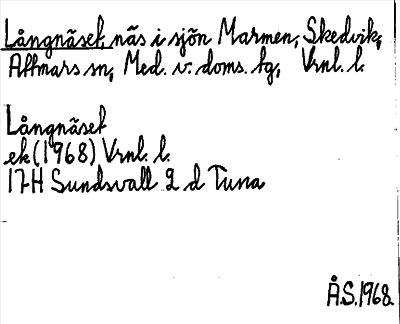 Långnäset, näs i sjön Marmen, Skedvik,
Attmars sn, Med. v. doms. tg, Vrnl. l.
Långnäset
ek (1968) Vrnl. l.
17H Sundsvall 2 d Tuna
Å.S. 1968.